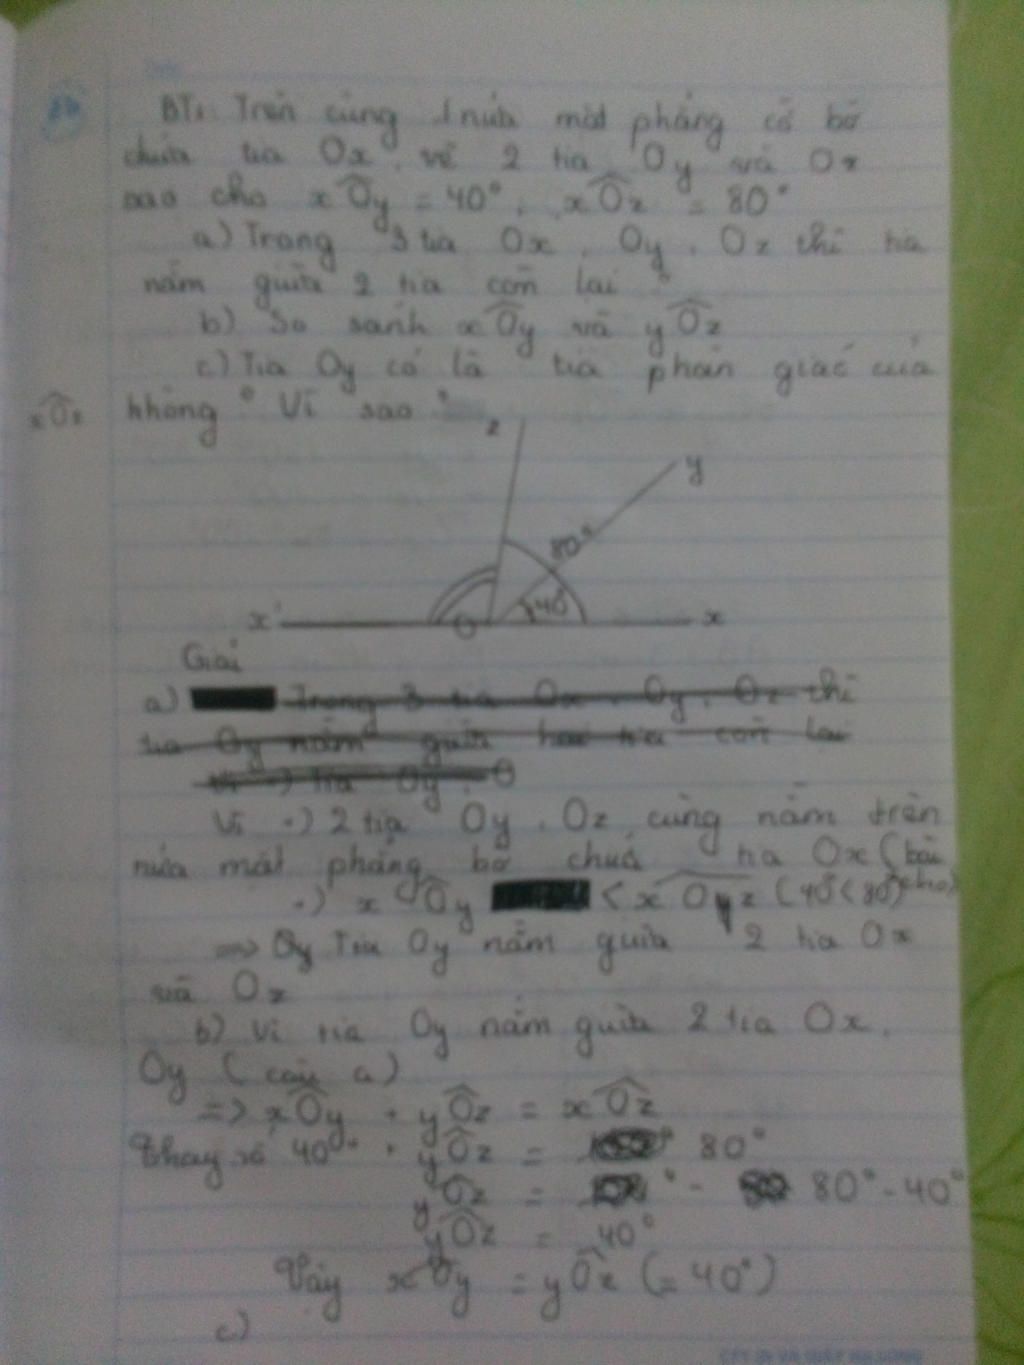 BT1: Trên cùng 1 nửa mặt phẳng có bờ
chứa tia Ox, vẽ 2 tia Oy và Oz
sao cho xÔy = 40°, xÔz = 80°
a) Trong 3 tia Ox, Oy, Oz thì tia
nằm giữa 2 tia còn lại ?
b) So sánh xÔy và yÔz
c) Tia Oy có là tia phân giác của
xÔz không ? Vì sao ?
z
y
80°
40°
x' O x
Giải
a) Trong 3 tia Ox, Oy, Oz thì
tia Oy nằm giữa hai tia còn lại
Vì .) tia Oy, O
Vì .) 2 tia Oy, Oz cùng nằm trên
nửa mặt phẳng bờ chứa tia Ox (bài
cho)
.) xÔy < xÔyz (40° < 80°)
=> Oy Tia Oy nằm giữa 2 tia Ox
và Oz
b) Vì tia Oy nằm giữa 2 tia Ox,
Oy (câu a)
=> xÔy + yÔz = xÔz
Thay số 40° + yÔz = 80°
yÔz = ° - 80° - 40°
yÔz = 40°
Vậy xÔy = yÔz (= 40°)
c)